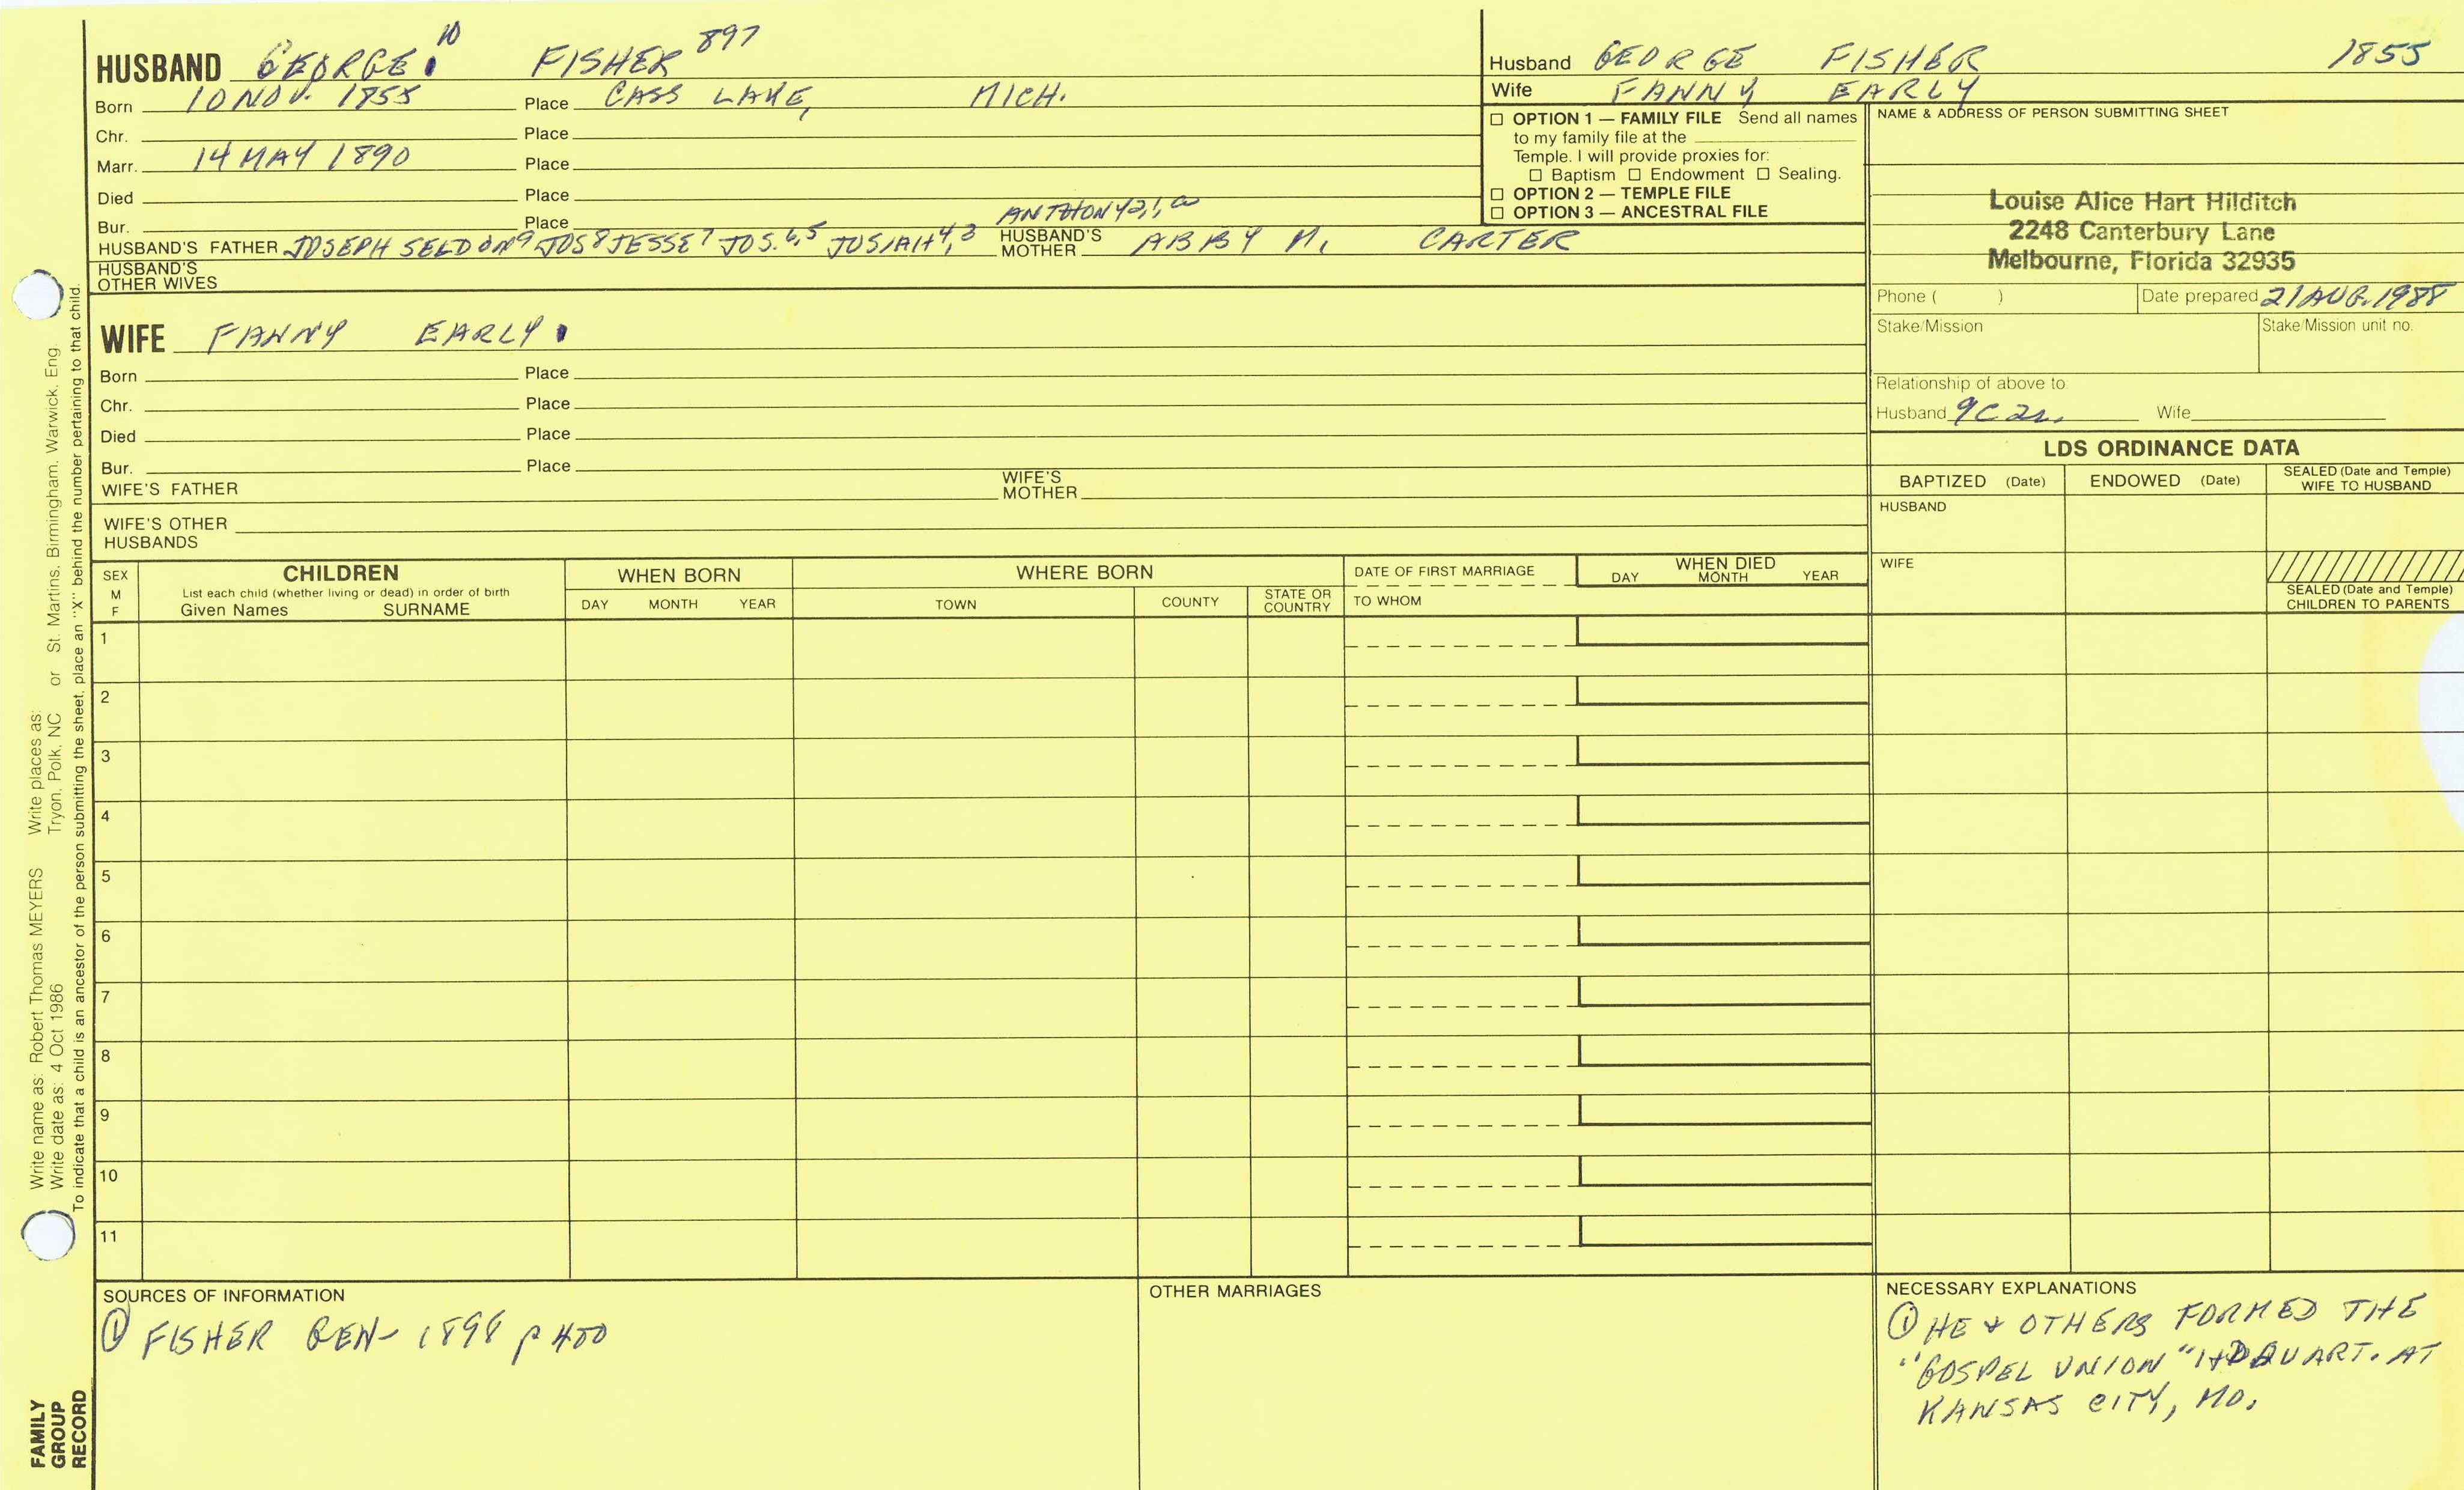 HUSBAND GEORGE 10 FISHER 897
Born 10 NOV. 1855 Place CASS LAKE, MICH.
Chr. Place
Marr. 14 MAY 1890 Place
Died Place
Bur. Place
HUSBAND'S FATHER JOSEPH SELDON 9 JOS 8 JESSE 7 JOS. 6,5 JOSIAH 4,3 ANTHONY 2,1,a HUSBAND'S MOTHER ABBY M. CARTER
HUSBAND'S OTHER WIVES
Husband GEORGE FISHER 1855
Wife FANNY EARLY
☐ OPTION 1 — FAMILY FILE Send all names
to my family file at the
Temple. I will provide proxies for:
☐ Baptism ☐ Endowment ☐ Sealing.
☐ OPTION 2 — TEMPLE FILE
☐ OPTION 3 — ANCESTRAL FILE
NAME & ADDRESS OF PERSON SUBMITTING SHEET
Louise Alice Hart Hilditch
2248 Canterbury Lane
Melbourne, Florida 32935
Phone ( ) Date prepared 21 AUG. 1988
Stake/Mission Stake/Mission unit no.
Relationship of above to:
Husband 9C 2r. Wife
WIFE FANNY EARLY
Born Place
Chr. Place
Died Place
Bur. Place
WIFE'S FATHER WIFE'S MOTHER
WIFE'S OTHER HUSBANDS
LDS ORDINANCE DATA
BAPTIZED (Date) ENDOWED (Date) SEALED (Date and Temple) WIFE TO HUSBAND
HUSBAND
WIFE
SEALED (Date and Temple) CHILDREN TO PARENTS
SEX M F
CHILDREN
List each child (whether living or dead) in order of birth
Given Names SURNAME
WHEN BORN
DAY MONTH YEAR
WHERE BORN
TOWN COUNTY STATE OR COUNTRY
DATE OF FIRST MARRIAGE
TO WHOM
WHEN DIED
DAY MONTH YEAR
1
2
3
4
5
6
7
8
9
10
11
SOURCES OF INFORMATION
① FISHER GEN- 1898 p 400
OTHER MARRIAGES
NECESSARY EXPLANATIONS
① HE & OTHERS FORMED THE
"GOSPEL UNION" HDQUART. AT
KANSAS CITY, MO.
Write name as: Robert Thomas MEYERS Write places as:
Write date as: 4 Oct 1986 Tryon, Polk, NC or St. Martins, Birmingham, Warwick, Eng.
To indicate that a child is an ancestor of the person submitting the sheet, place an "X" behind the number pertaining to that child.
FAMILY
GROUP
RECORD